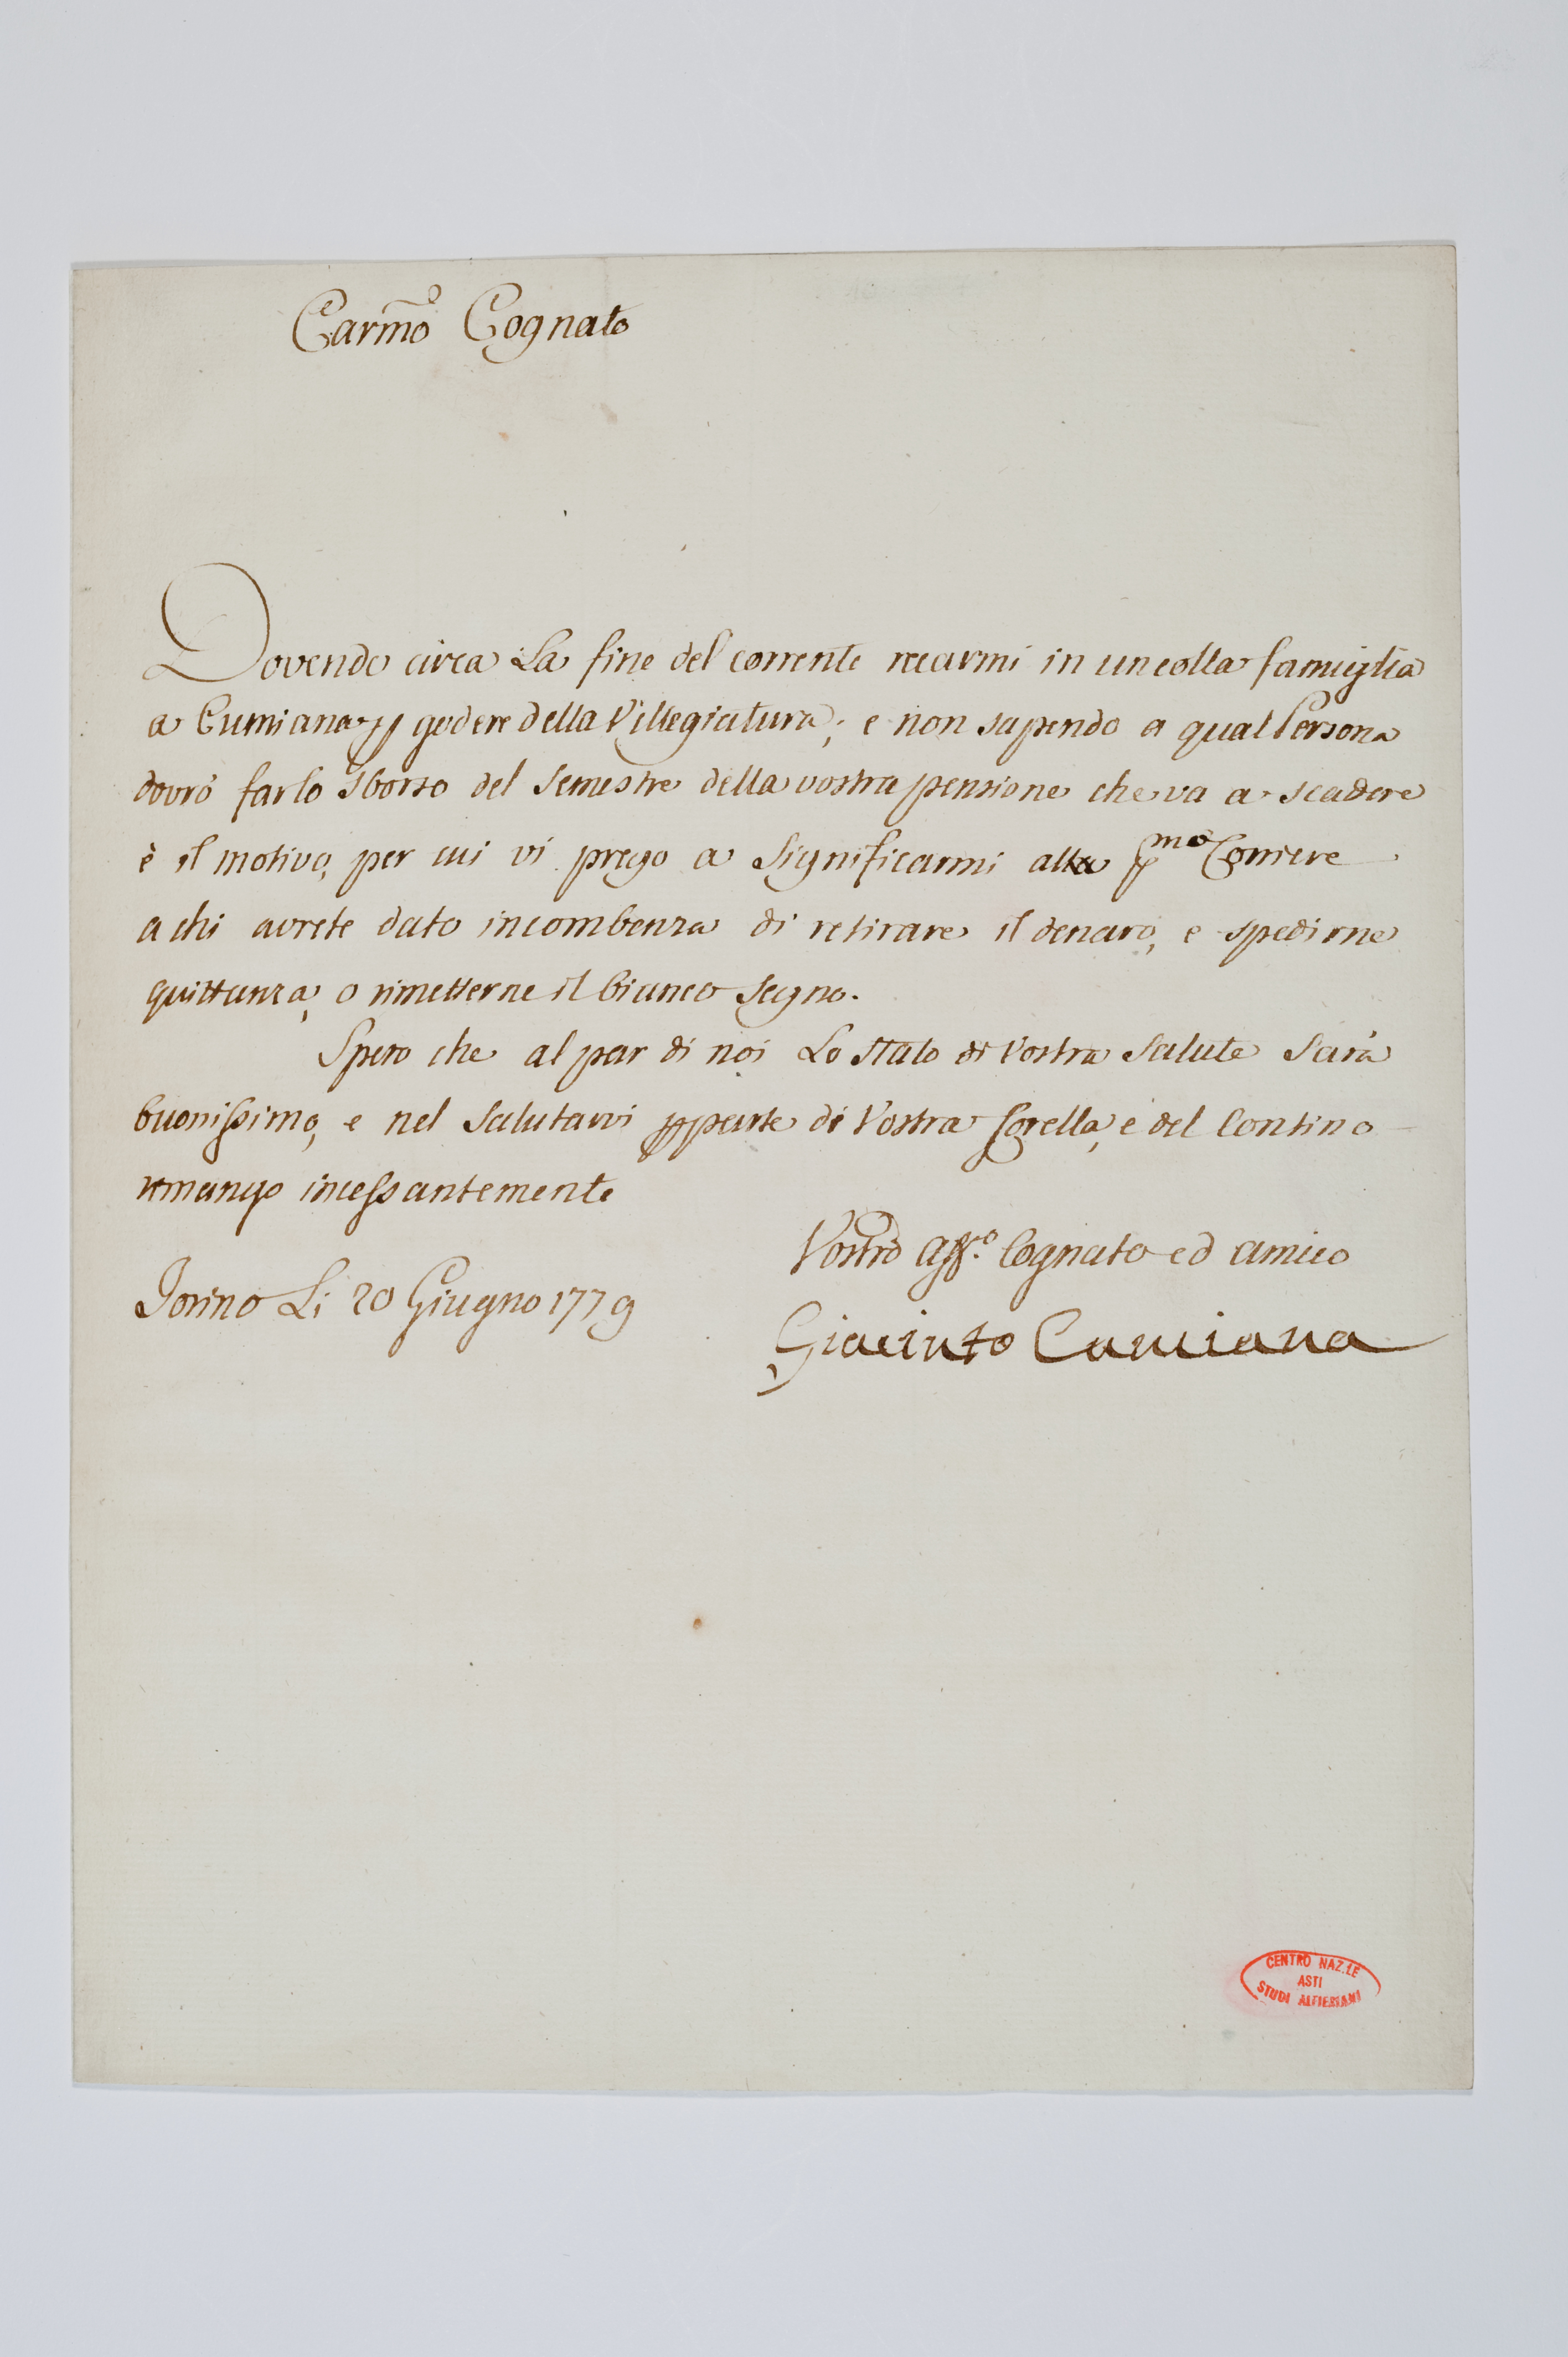 Carmo Cognato
Dovendo circa La fine del corrente recarmi in un colla famiglia
a Cumiana p godere della Villegiatura; e non sapendo a qual Persona
dovrò far lo sborso del Semestre della vostra pensione che va a scadere
è il motivo, per cui vi prego a Significarmi alla pmo Corriere
a chi avrete dato incombenza di retirare il denaro, e spedirne
quittanza, o rimetterne il bianco segno.
Spero che al par di noi Lo Stato di Vostra Salute Sarà
buonissimo, e nel Salutarvi pparte di Vostra Sorella, e del Contino
rimango incessantemente
Vostro aff.o Cognato ed amico
Torino Li 20 Giugno 1779
Giacinto Cumiana
CENTRO NAZ.LE
ASTI
STUDI ALFIERIANI